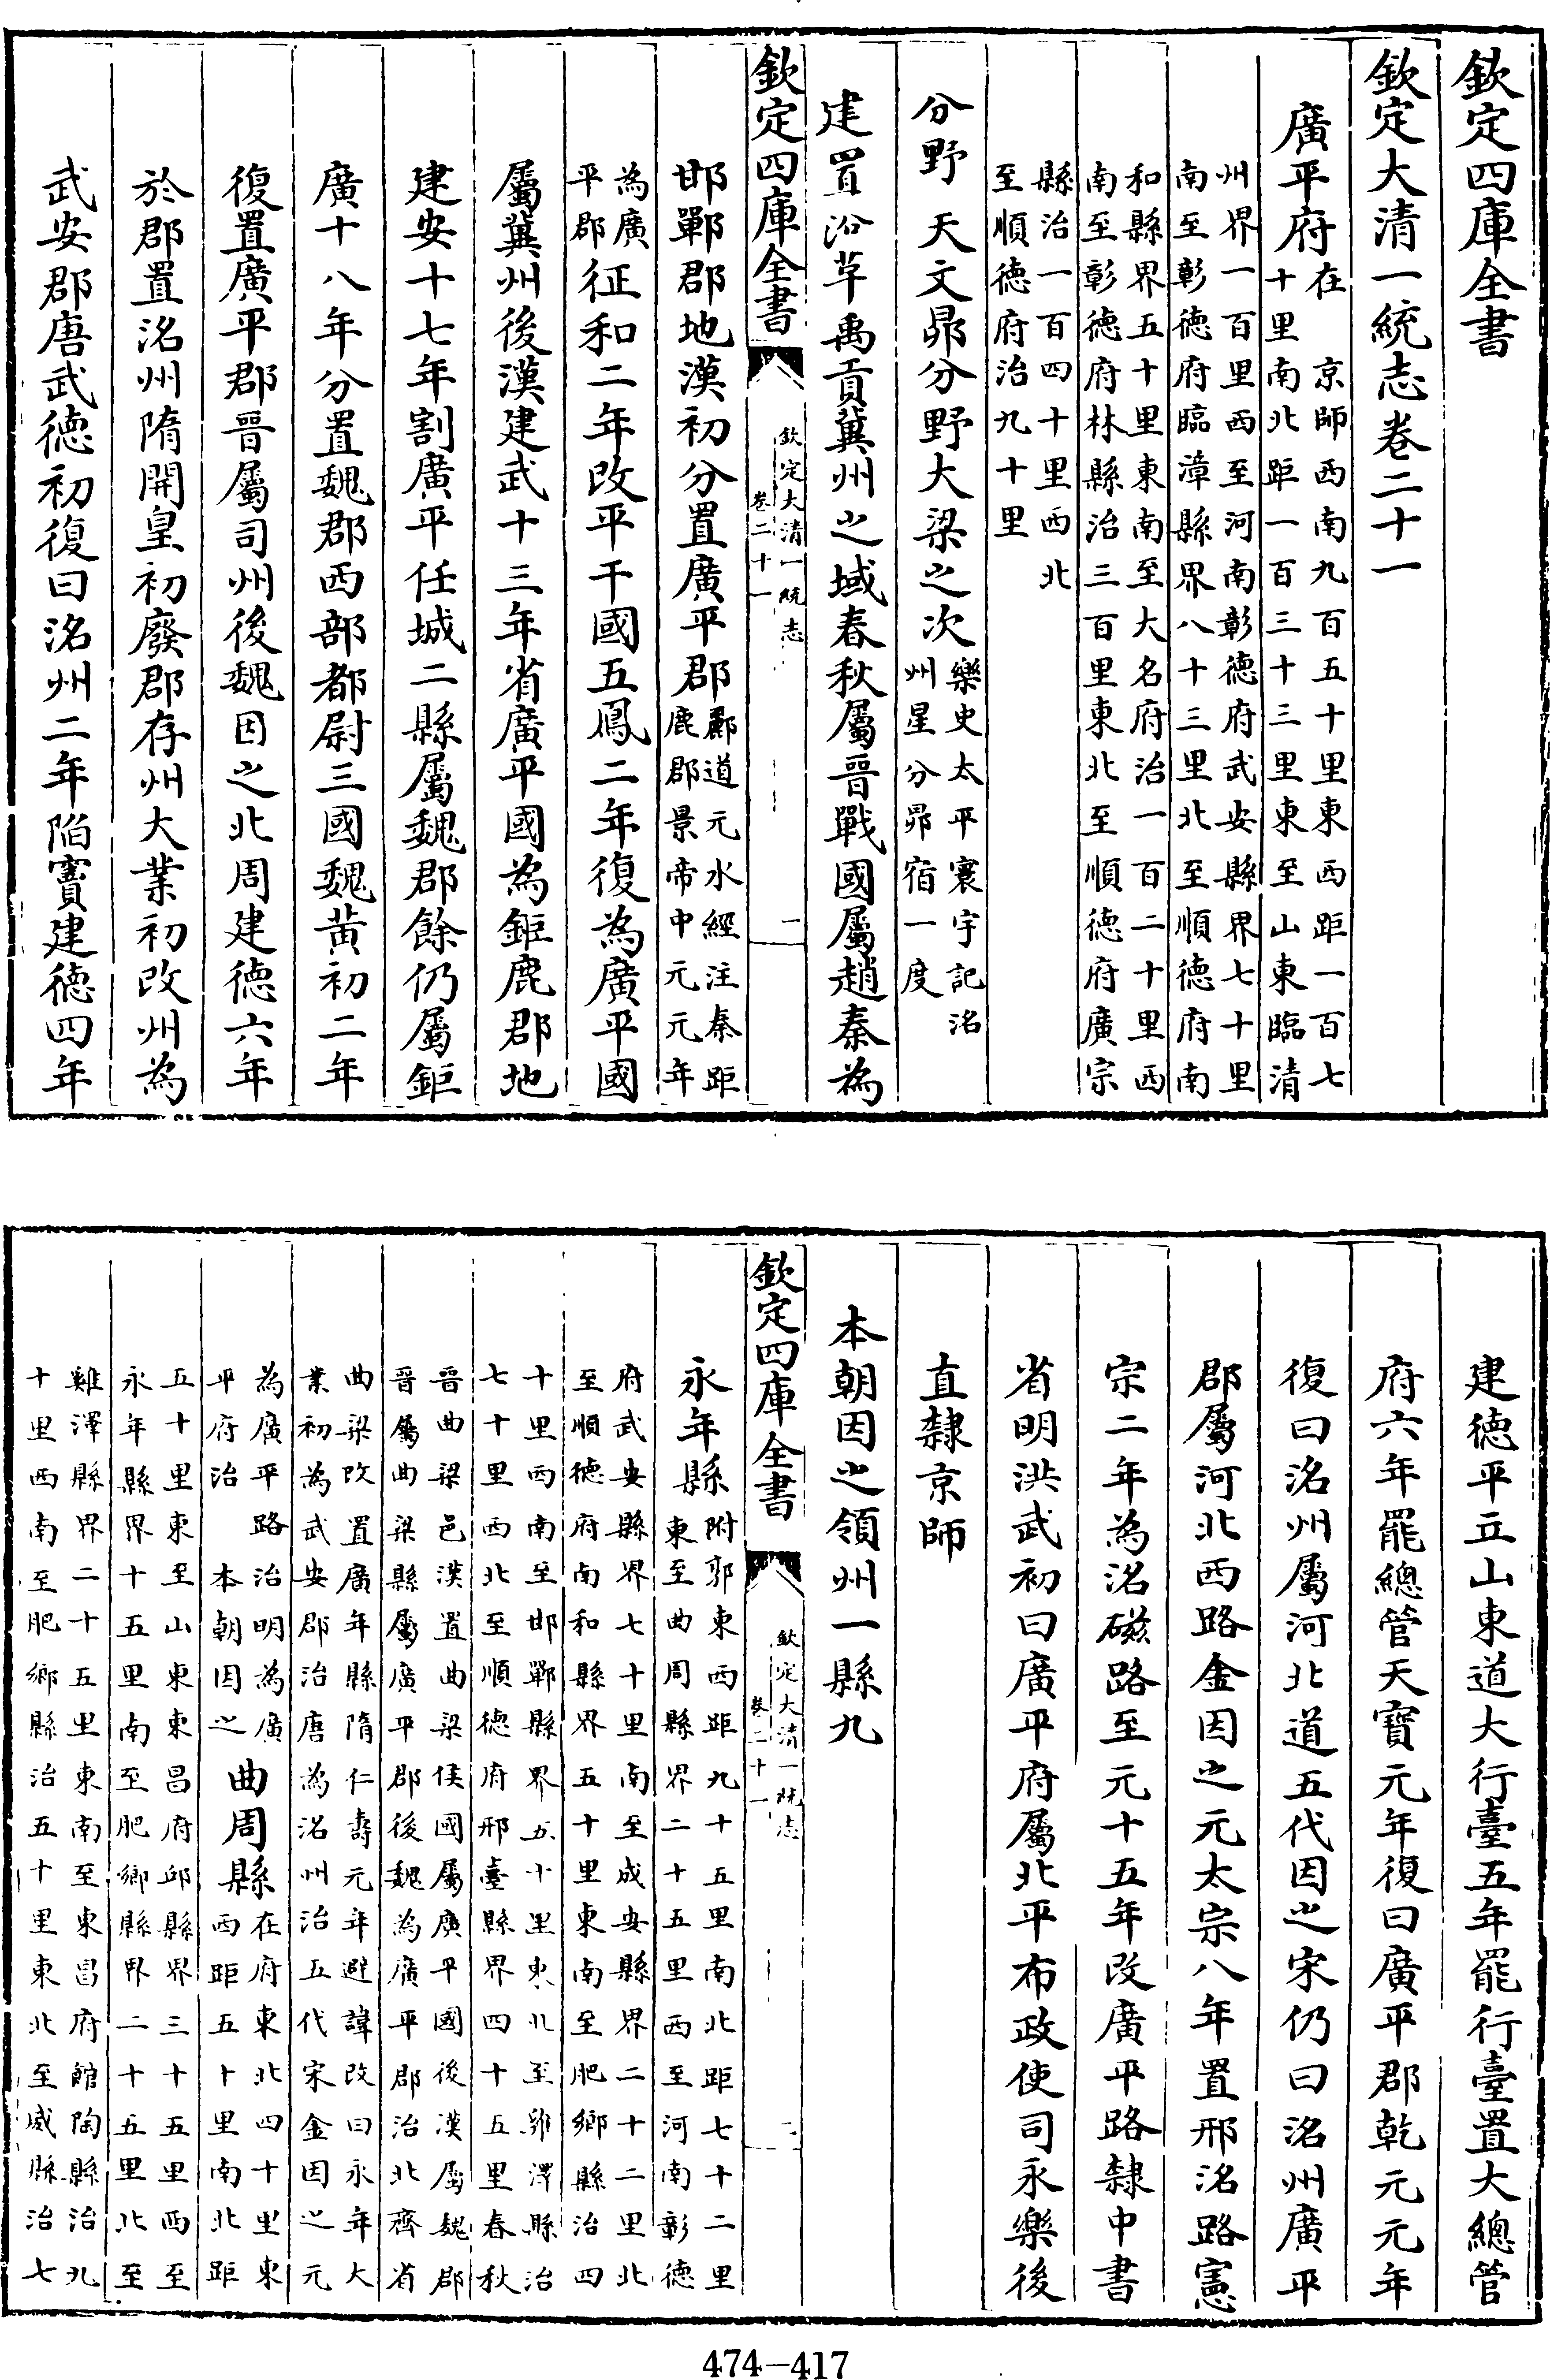 欽定四庫全書
欽定大清一統志卷二十一
廣平府在　京師西南九百五十里東西距一百七
十里南北距一百三十三里東至山東臨清
州界一百里西至河南彰德府武安縣界七十里
南至彰德府臨漳縣界八十三里北至順德府南
和縣界五十里東南至大名府治一百二十里西
南至彰德府林縣治三百里東北至順德府廣宗
縣治一百四十里西北
至順德府治九十里
分野　天文昴分野大梁之次樂史太平寰宇記洺
州星分昴宿一度
建置沿革禹貢冀州之域春秋屬晉戰國屬趙秦為
欽定四庫全書
欽定大清一統志
卷二十一
一
邯鄲郡地漢初分置廣平郡酈道元水經注秦距
鹿郡景帝中元元年
為廣
平郡征和二年改平干國五鳳二年復為廣平國
屬冀州後漢建武十三年省廣平國為鉅鹿郡地
建安十七年割廣平任城二縣屬魏郡餘仍屬鉅
廣十八年分置魏郡西部都尉三國魏黃初二年
復置廣平郡晉屬司州後魏因之北周建德六年
於郡置洺州隋開皇初廢郡存州大業初改州為
武安郡唐武德初復曰洺州二年陷竇建德四年
建德平立山東道大行臺五年罷行臺置大總管
府六年罷總管天寶元年復曰廣平郡乾元元年
復曰洺州屬河北道五代因之宋仍曰洺州廣平
郡屬河北西路金因之元太宗八年置邢洺路憲
宗二年為洺磁路至元十五年改廣平路隸中書
省明洪武初曰廣平府屬北平布政使司永樂後
直隸京師
本朝因之領州一縣九
欽定四庫全書
欽定大清一統志
卷二十一
二
永年縣附郭東西距九十五里南北距七十二里
東至曲周縣界二十五里西至河南彰德
府武安縣界七十里南至成安縣界二十二里北
至順德府南和縣界五十里東南至肥鄉縣治四
十里西南至邯鄲縣界五十里東北至雞澤縣治
七十里西北至順德府邢臺縣界四十五里春秋
晉曲梁邑漢置曲梁侯國屬廣平國後漢屬魏郡
晉屬曲梁縣屬廣平郡後魏為廣平郡治北齊省
曲梁改置廣年縣隋仁壽元年避諱改曰永年大
業初為武安郡治唐為洺州治五代宋金因之元
為廣平路治明為廣
平府治　本朝因之曲周縣在府東北四十里東
西距五十里南北距
五十里東至山東東昌府邱縣界三十五里西至
永年縣界十五里南至肥鄉縣界二十五里北至
雞澤縣界二十五里東南至東昌府館陶縣治九
十里西南至肥鄉縣治五十里東北至威縣治七
474-417